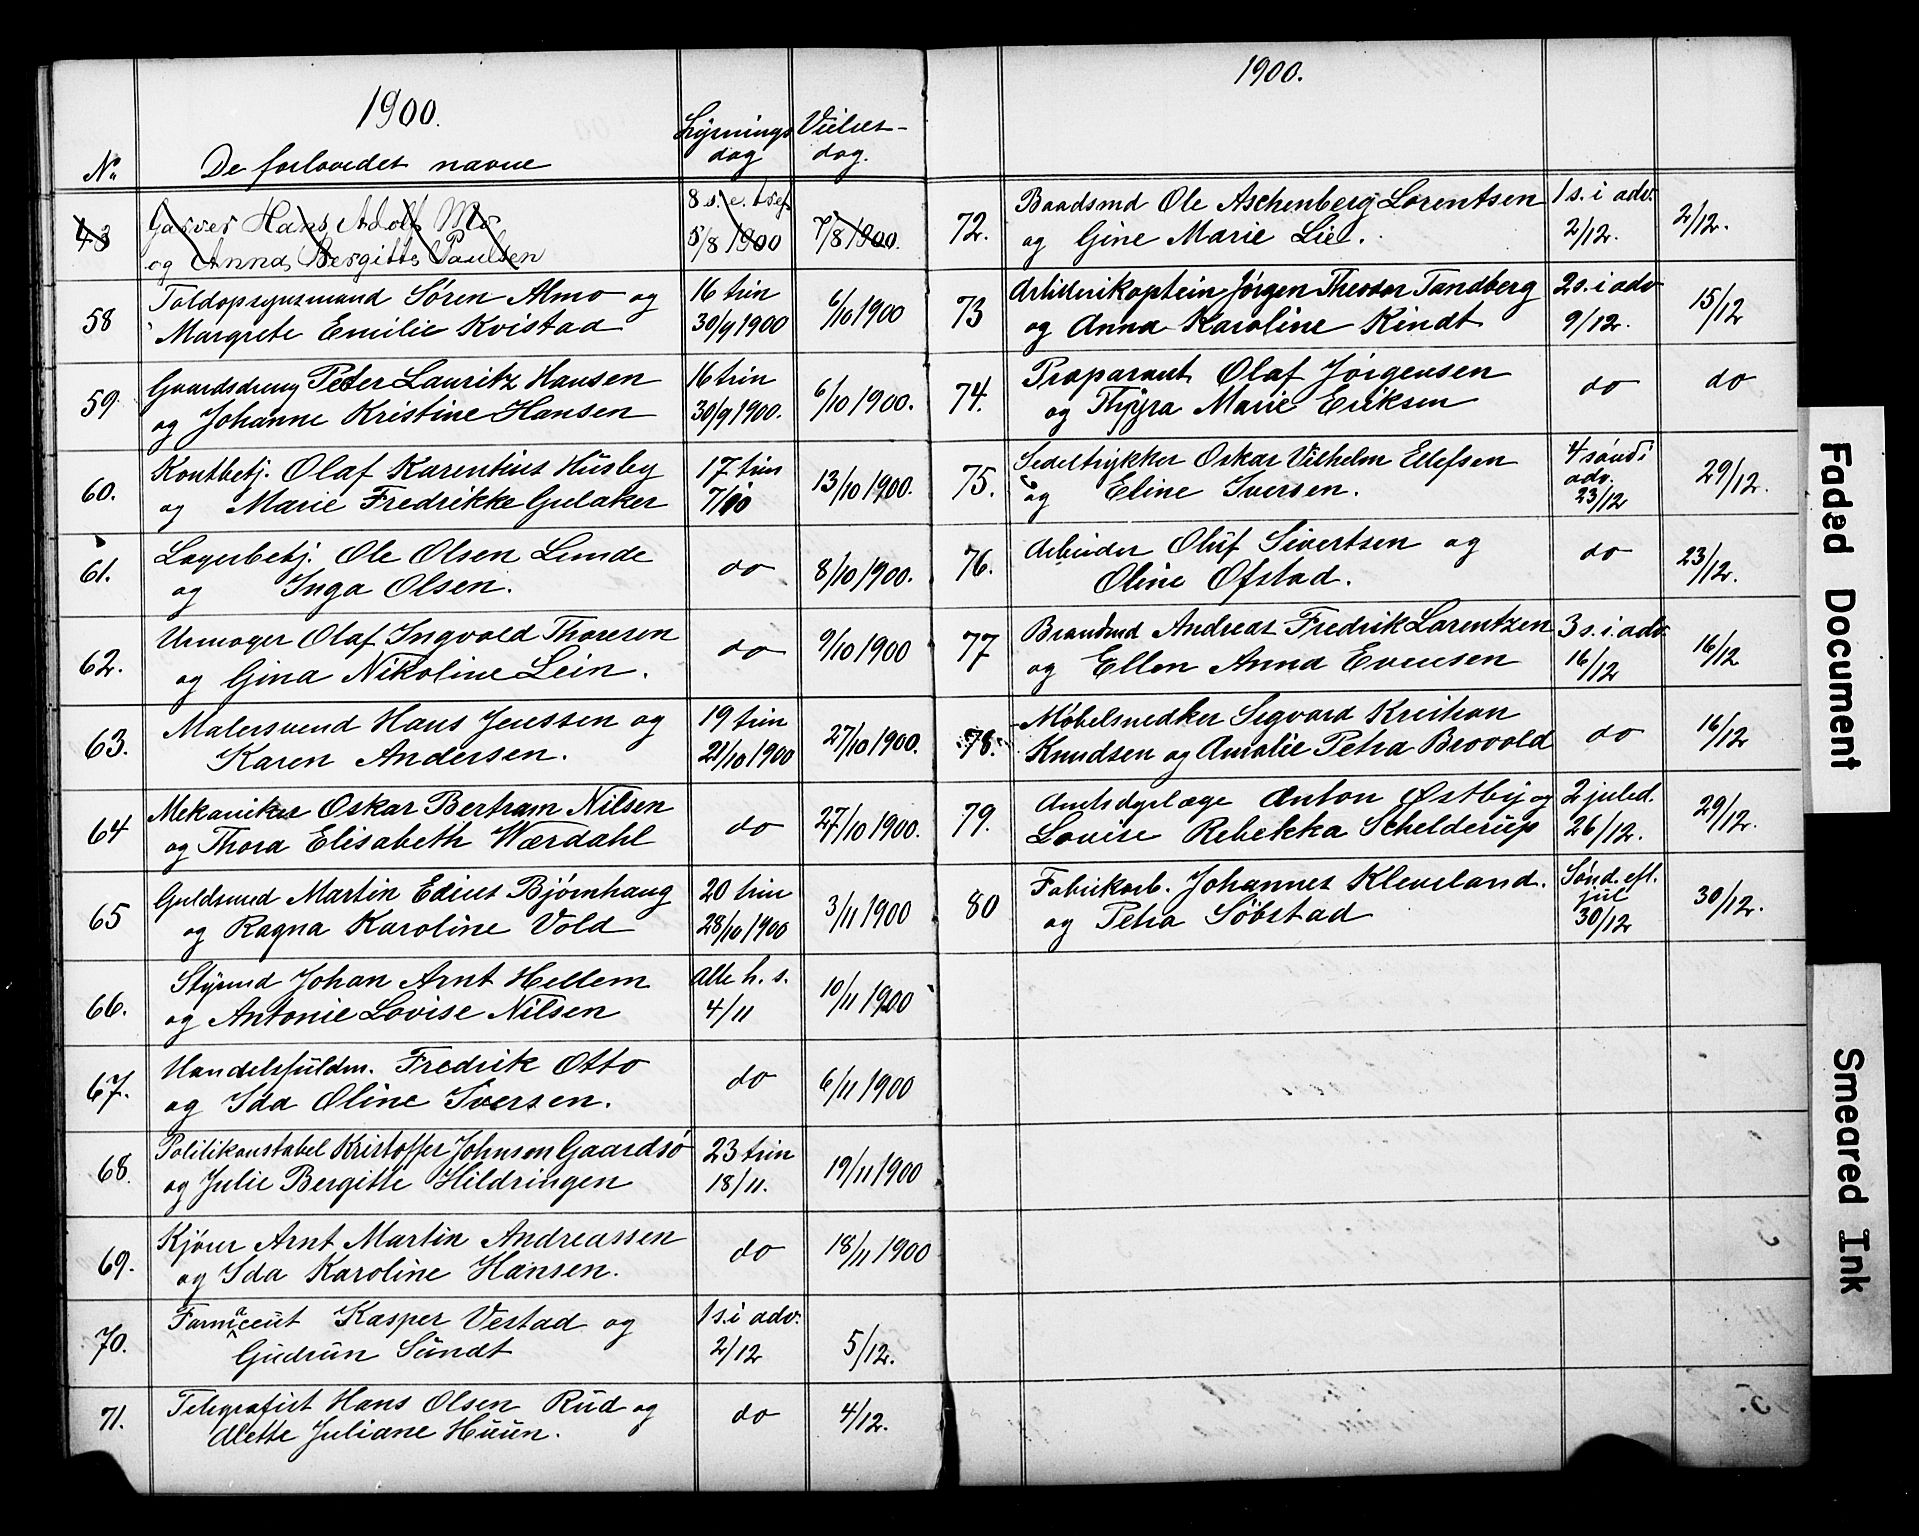 1900.
No. De forlovedes navne Lysnings dag Vielses-dag.
43 Garver Hans Adolf Mo 8 s. e. tref.
og Anna Bergitte Paulsen 5/8 1900 7/8 1900.
58 Toldopsynsmand Søren Almo og 16 trin
Margrete Emilie Kvistad 30/9 1900 6/10 1900
59 Gaardsdreng Peter Lauritz Hansen 16 trin
og Johanne Kristine Hansen 30/9 1900. 6/10 1900.
60. Kontbetj. Olaf Karentius Husby 17 trin
og Marie Fredrikke Gulaker 7/10 13/10 1900.
61. Lagerbetj. Ole Olsen Lunde do 8/10 1900.
og Inga Olsen.
62. Urmager Olaf Ingvald Thoresen do 9/10 1900
og Gina Nikoline Lein.
63. Malersvend Hans Jenssen og 19 trin
Karen Andersen. 21/10 1900 27/10 1900.
64 Mekaniker Oskar Bertram Nilsen do 27/10 1900.
og Thora Elisabeth Wærdahl
65 Guldsmd Martin Edius Bjørnhaug 20 trin
og Ragna Karoline Vold 28/10 1900 3/11 1900
66. Styrmd Johan Arnt Hellem Alle h. s.
og Antonie Lovise Nilsen 4/11 10/11 1900
67. Handelsfuldm. Fredrik Otto do 6/11 1900
og Ida Oline Iversen.
68. Politikonstabel Kristoffer Johnsen Gaardsø 23 trin
og Julie Bergitte Hildringen 18/11. 19/11 1900
69. Kjører Arnt Martin Andreassen do 18/11 1900
og Ida Karoline Hansen.
70. Farmaceut Kasper Vestad og 1 s. i adv.
Gudrun Sundt 2/12 5/12.
71. Telegrafist Hans Olsen Rud og do 4/12.
Alette Juliane Huun.
1900.
72. Baadsmd Ole Aschenberg Lorentsen 1 s. i adv.
og Gine Marie Lie. 2/12. 2/12.
73 Artillerikaptein Jørgen Theodor Tandberg 2 s. i adv
og Anna Karoline Kindt 9/12. 15/12
74. Præparant Olaf Jørgensen do do
og Thyra Marie Eriksen
75. Sedeltrykker Oskar Vilhelm Ellefsen 4 sønd i
og Eline Iversen. adv. 23/12 29/12.
76. Arbeider Oluf Sivertsen og do 23/12.
Oline Øfstad.
77 Brandmd Andreas Fredrik Lorentzen 3 s. i. adv.
og Ellen Anna Evensen 16/12 16/12
78. Møbelsnedker Segvard Kristian do 16/12
Knudsen og Amalie Petra Brovold
79. Amtsdyrlæge Anton Østby og 2 juled.
Lovise Rebekka Schelderup 26/12. 29/12.
80 Fabrikarb. Johannes Kleveland. Sønd. eft. jul
og Petra Søbstad 30/12 30/12.
Faded Document
Smeared Ink